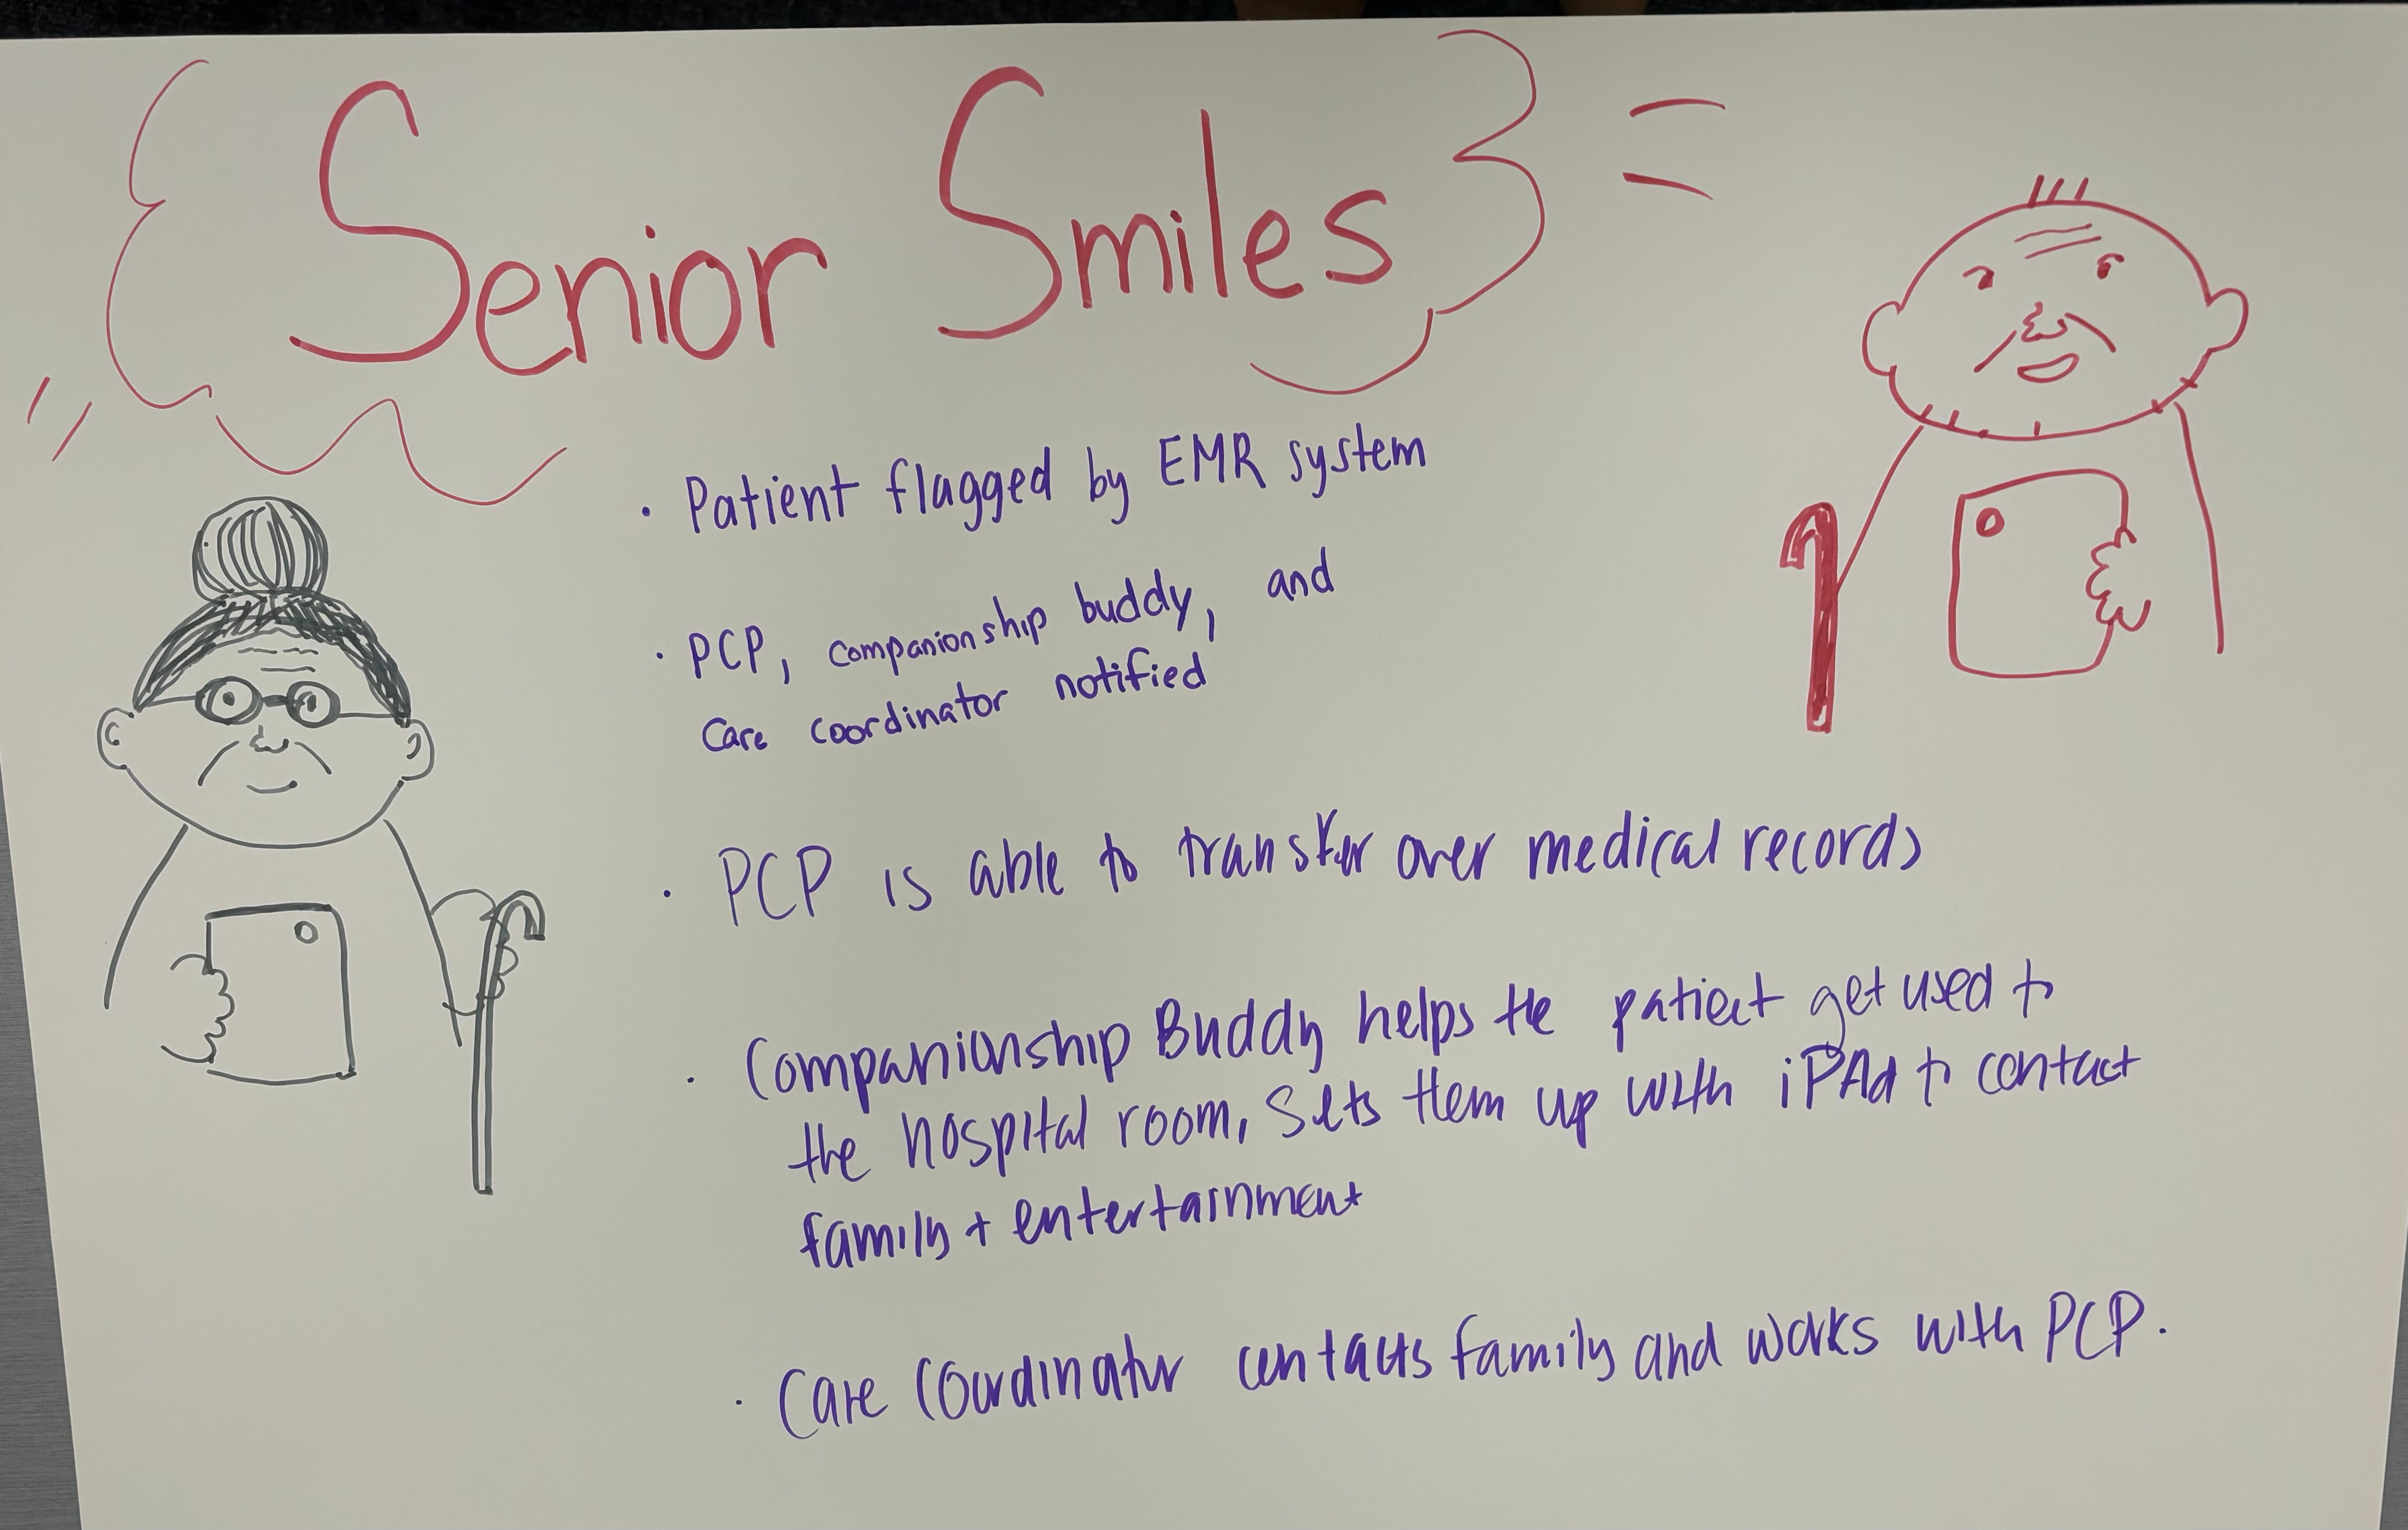 Senior Smiles
• Patient flagged by EMR system
• PCP, companionship buddy, and
care coordinator notified
• PCP is able to transfer over medical records
• Companionship Buddy helps the patient get used to
the hospital room, sets them up with iPAd to contact
family + entertainment
• Care Coordinator contacts family and works with PCP.